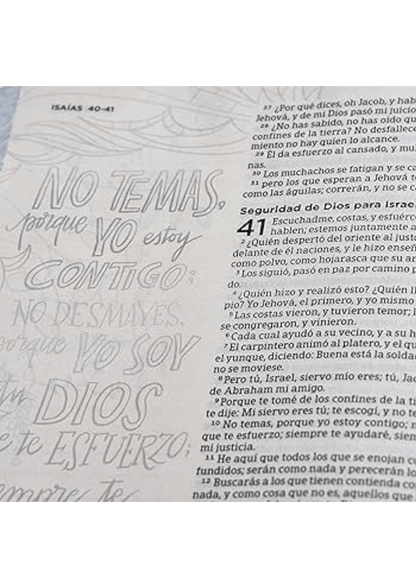 ISAÍAS 40-41
NO TEMAS,
porque YO estoy
CONTIGO;
NO DESMAYES,
YO SOY
tu
DIOS
te ESFUERZO;
siempre te
27 ¿Por qué dices, oh Jacob, y hab
Jehová, y de mi Dios pasó mi juicio
28 ¿No has sabido, no has oído qu
confines de la tierra? No desfallec
miento no hay quien lo alcance.
29 Él da esfuerzo al cansado, y mul
nas.
30 Los muchachos se fatigan y se ca
31 pero los que esperan a Jehová t
como las águilas; correrán, y no se c
Seguridad de Dios para Israel
41 Escuchadme, costas, y esfuérc
hablen; estemos juntamente a
2 ¿Quién despertó del oriente al just
delante de él naciones, y le hizo enseñ
como polvo, como hojarasca que su ar
3 Los siguió, pasó en paz por camino p
do.
4 ¿Quién hizo y realizó esto? ¿Quién ll
pio? Yo Jehová, el primero, y yo mismo
5 Las costas vieron, y tuvieron temor; l
se congregaron, y vinieron.
6 Cada cual ayudó a su vecino, y a su h
7 El carpintero animó al platero, y el qu
el yunque, diciendo: Buena está la solda
no se moviese.
8 Pero tú, Israel, siervo mío eres; tú, Jac
de Abraham mi amigo.
9 Porque te tomé de los confines de la ti
te dije: Mi siervo eres tú; te escogí, y no te
10 No temas, porque yo estoy contigo; n
que te esfuerzo; siempre te ayudaré, siem
mi justicia.
11 He aquí que todos los que se enojan co
fundidos; serán como nada y perecerán lo
12 Buscarás a los que tienen contienda co
nada, y como cosa que no es, aquellos que